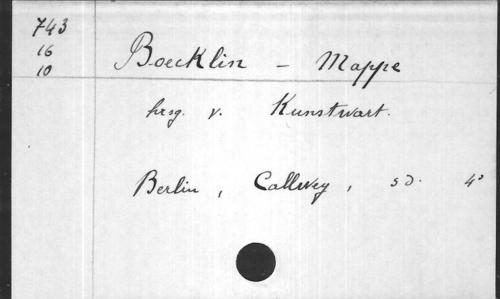 743
16
10
Boecklin - Mappe
hrsg. v. Kunstwart.
Berlin, Callwey, s d. 4°